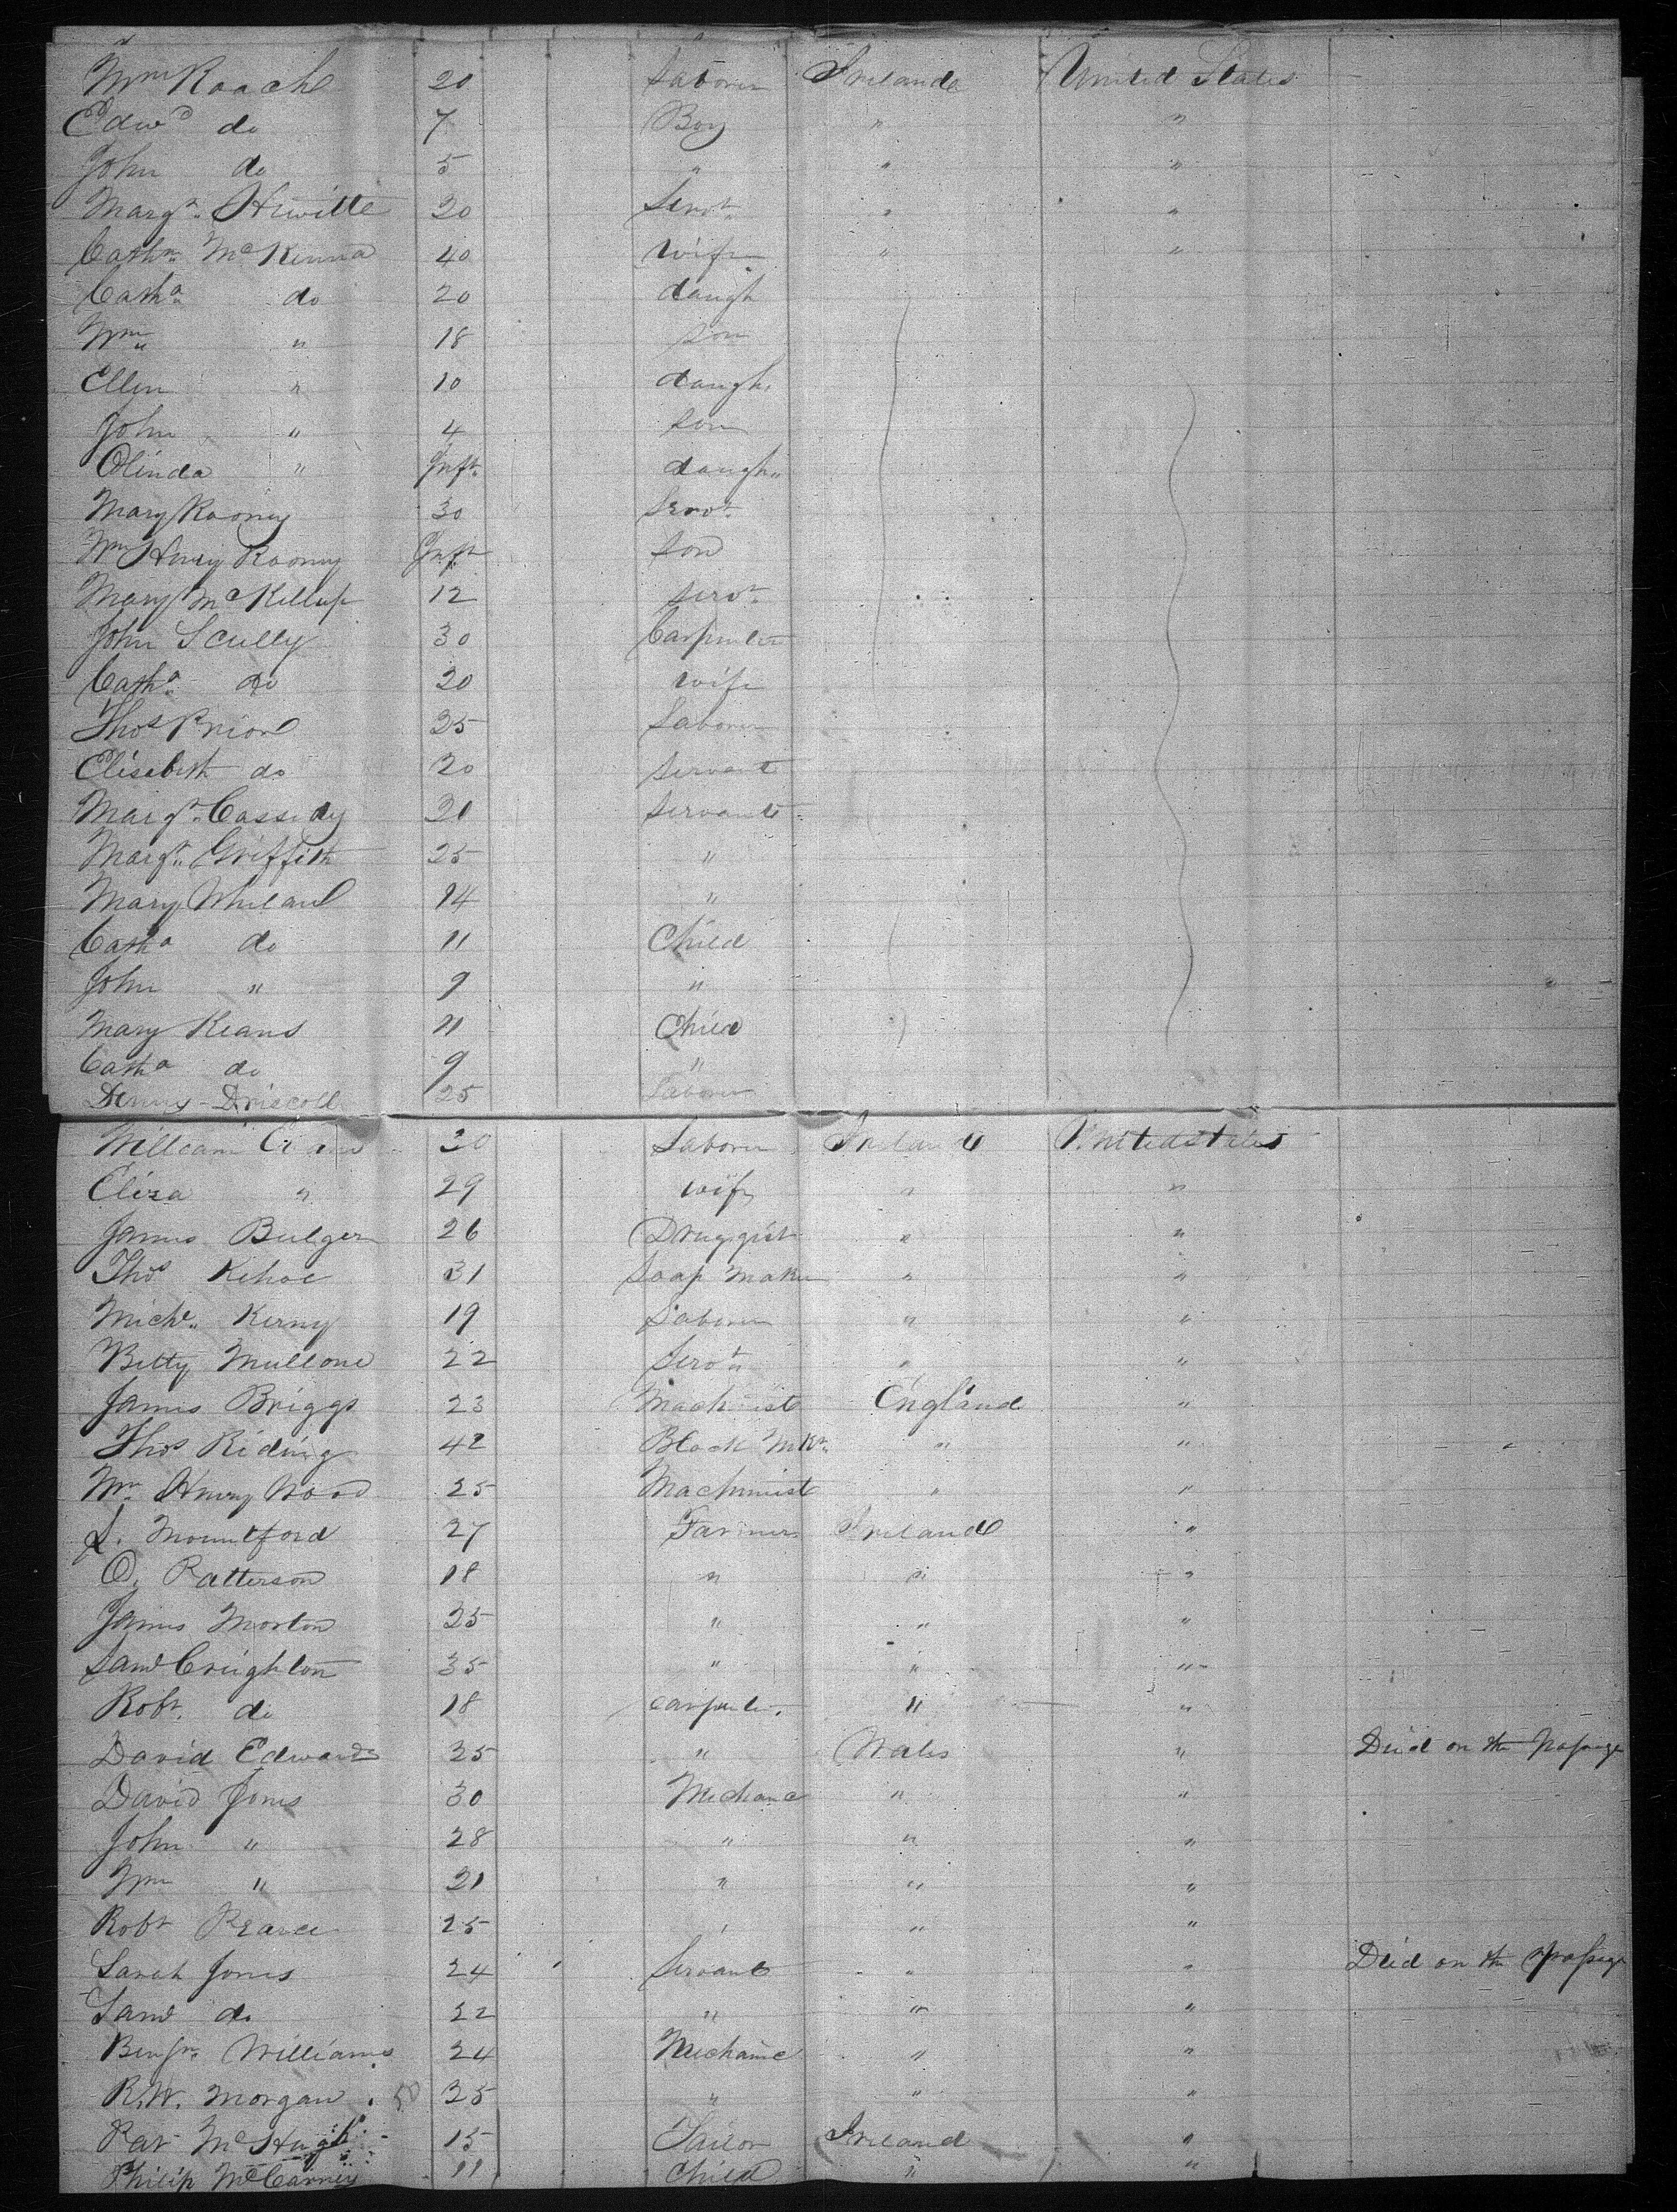 Wm Roach 20 Laborer Ireland United States
Edwd do 7 Boy " "
John do 5 " " "
Margt. Hewitte 20 Servt. " "
Cathn. McKenna 40 wife " "
Catha do 20 daugh
Wm " 18 son
Ellen " 10 daugh.
John " 4 son
Olinda " Inft. daugh.
Mary Rooney 30 Servt.
Wm Henry Rooney Inft son
Mary McKillup 12 servt.
John Scully 30 Carpenter
Catha. do 20 wife
Thos Prior 35 Laborer
Elisabeth do 20 servant
Margt. Cassidy 21 servant
Margt. Griffith 25 "
Mary Whelan 14 "
Catha do 11 Child
John " 9 "
Mary Keans 11 Child
Catha do 9 "
Denny Driscoll 25 Laborer
William 30 Laborer Ireland United States
Eliza " 29 wife " "
James Bulger 26 Druggist " "
Thos Kehoe 31 Soap Maker " "
Michl. Kerny 19 Laborer " "
Betty Mullone 22 Servt. " "
James Briggs 23 Machinist England "
Thos Riding 42 Block Mkr. " "
Wm Henry Wood 25 Machinist " "
S. Mountford 27 Farmer Ireland "
O. Patterson 18 " " "
James Morton 25 " " "
Saml Creighton 35 " " "
Robt. do 18 carpenter. " "
David Edwards 35 " Wales " Died on the Passage
David Jones 30 Mechanic " "
John " 28 " " "
Wm " 21 " " "
Robt Pearce 25 " " "
Sarah Jones 24 Servant " " Died on the passage
Saml do 22 " " "
Benjn. Williams 24 Mechanic " "
R. W. Morgan . 50 35 " " "
Pat McHugh 15 Tailor Ireland "
Philip McCarney 11 Child " "